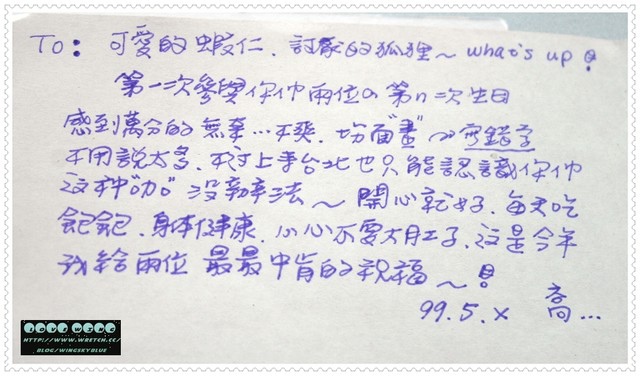 To: 可愛的蝦仁.討厭的狐狸～what's up!
第一次參與你们兩位の第n次生日
感到萬分的無奈…不爽.切面"書"～寫錯字
不用說太多.不过上宇台北也只能認識你们
这种"咖"沒辦法～開心就好.每天吃
飽飽.身体健康.小心不要大肚子.这是今年
我給兩位最最中肯的祝福～!
99.5.x 喬...
HTTP://WWW.WRETCH.CC/
BLOG/WINGSKYBLUE